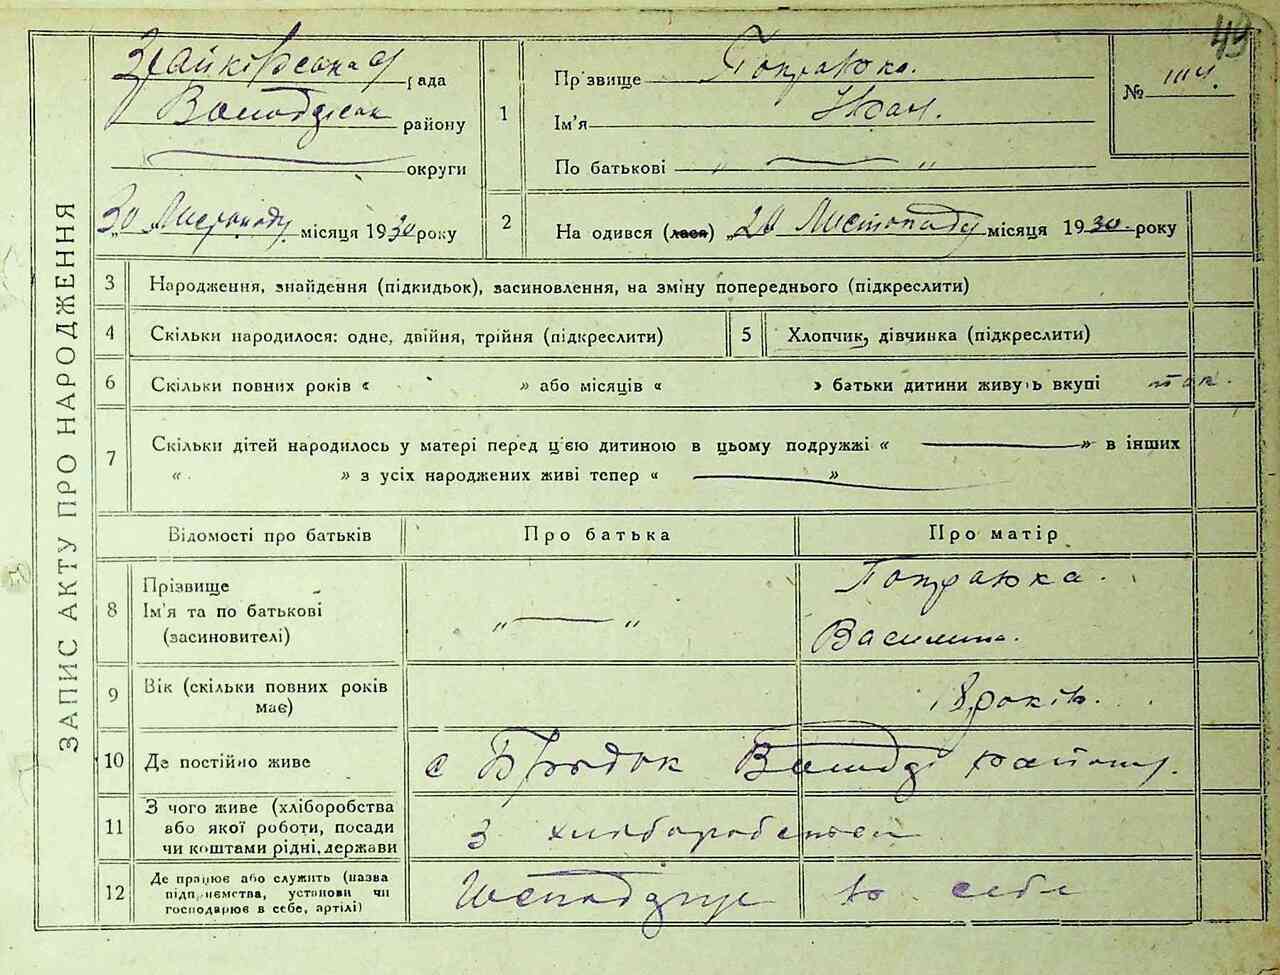 49
ЗАПИС АКТУ ПРО НАРОДЖЕННЯ
рада
району
округи
30 Листопаду місяця 1930 року
1
Прізвище
Ім'я Іван.
По батькові „ — „
№ 114.
2
На одився (лася) „20 Листопаду місяця 1930. року
3 Народження, знайдення (підкидьок), засиновлення, на зміну попереднього (підкреслити)
4 Скільки народилося: одне, двійня, трійня (підкреслити)
5 Хлопчик, дівчинка (підкреслити)
6 Скільки повних років « » або місяців « » батьки дитини живуть вкупі так.
7 Скільки дітей народилось у матері перед ц'єю дитиною в цьому подружжі « — » в інших
« » з усіх народжених живі тепер « — »
Відомості про батьків Про батька Про матір
8 Прізвище
Ім'я та по батькові
(засиновителі)
„ — „
Василина.
9 Вік (скільки повних років
має)
18 років.
10 Де постійно живе с району.
11 З чого живе (хліборобства
або якої роботи, посади
чи коштами рідні, держави
З хліборобства
12 Де працює або служить (назва
підприємства, установи чи
господарює в себе, артілі)
в себе